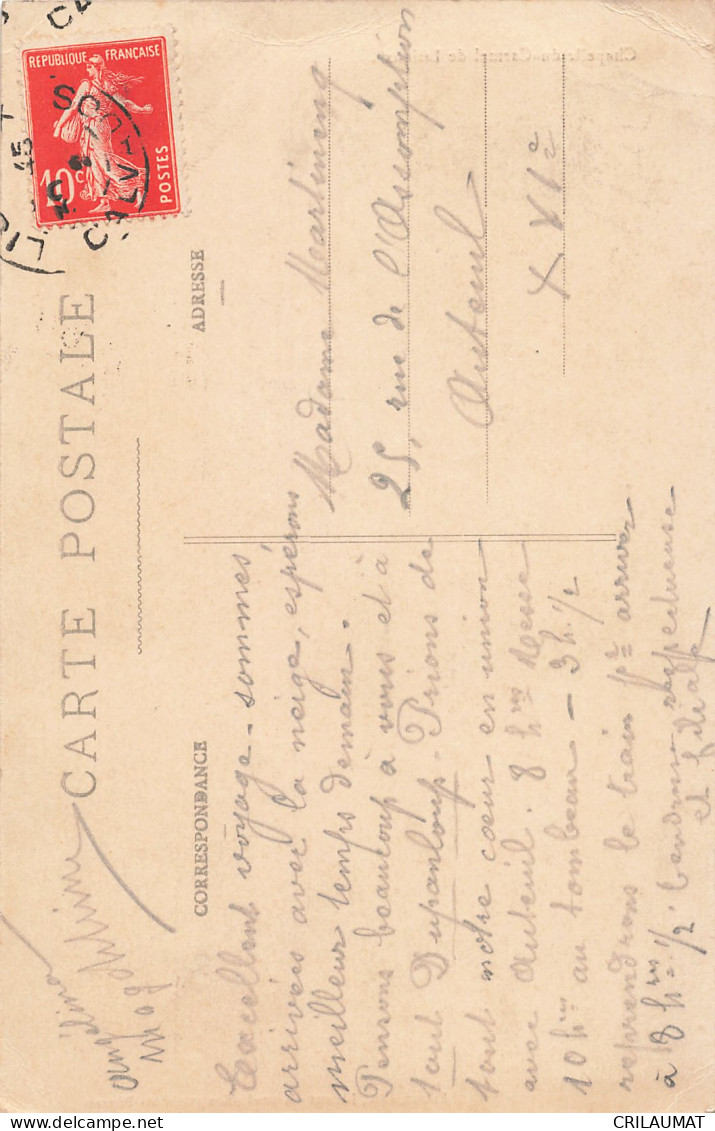 CARTE POSTALE
CORRESPONDANCE
ADRESSE
REPUBLIQUE FRANÇAISE
10c
POSTES
CALVADOS
Excellent voyage - sommes
arrivées avec la neige, espérons
meilleur temps demain.
Pensons beaucoup à vous et à
tout Dupanloup. Prions de
tout notre cœur en union
avec Auteuil. 8 h Messe
10 h au tombeau - 3 h. 1/2
reprendrons le train pr arriver
à 8 h 1/2. Tendresse respectueuse
et filiale
Madame Martineng
25, rue de l'Assomption
Auteuil
XVIe
Chapelle du Carmel de
CRILAUMAT